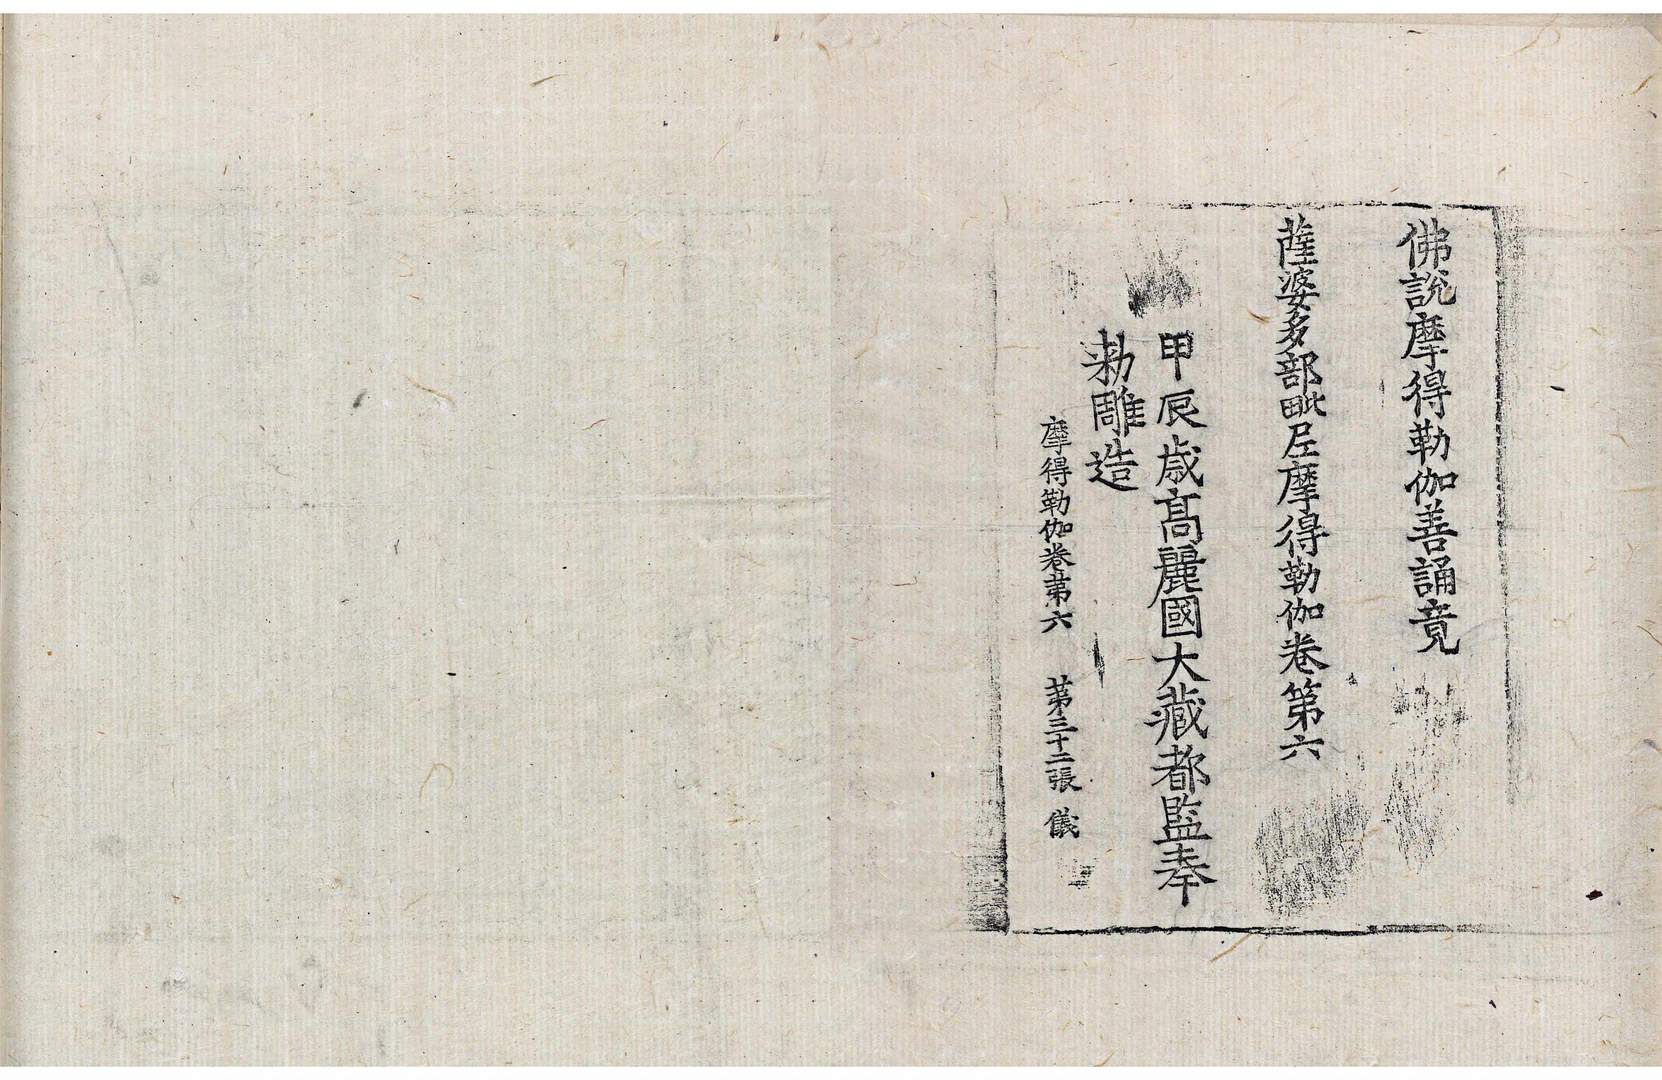 佛說摩得勒伽善誦竟
薩婆多部毗尼摩得勒伽卷第六
甲辰歳高麗國大藏都監奉
勅雕造
摩得勒伽卷第六 第三十二張 儀